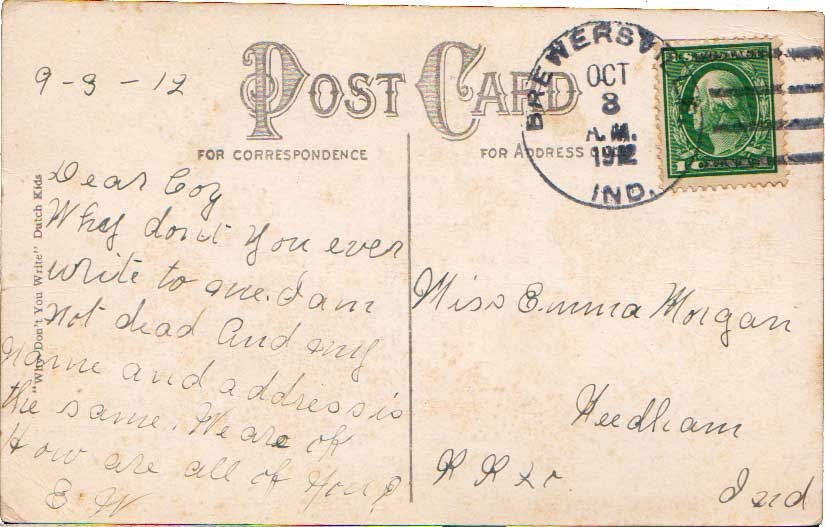 9-3-12
POST CARD
FOR CORRESPONDENCE
FOR ADDRESS
BREWERSV
OCT
8
A.M.
1912
IND.
1 CENT
"Why Don't You Write" Dutch Kids
Dear Coz
Why don't you ever
write to me. I am
not dead and my
name and address is
the same. We are ok
How are all of you?
E W
Miss Emma Morgan
Needham
R R
Ind